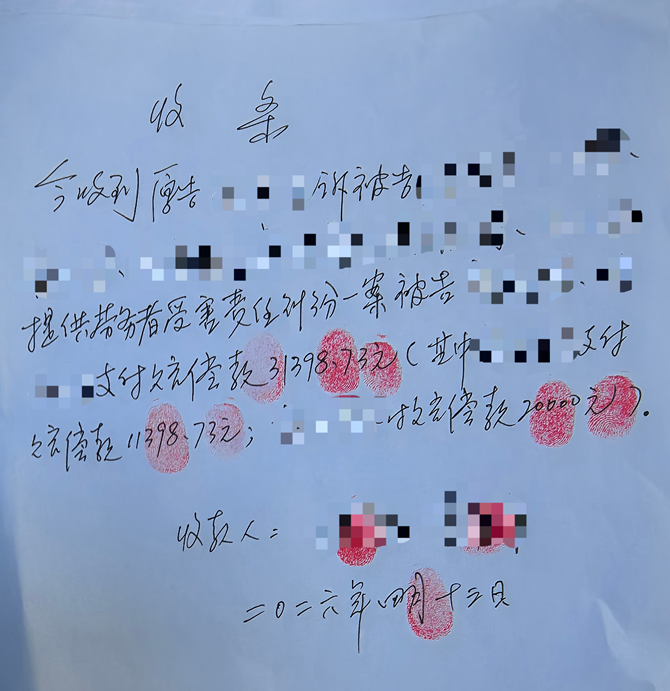 收 条
今收到原告 诉被告 、
、
、 、
提供劳务者受害责任纠纷一案被告 、
支付赔偿款31398.73元(其中 支付
赔偿款11398.73元; 收赔偿款20000元)。
收款人:
二0二六年四月十三日